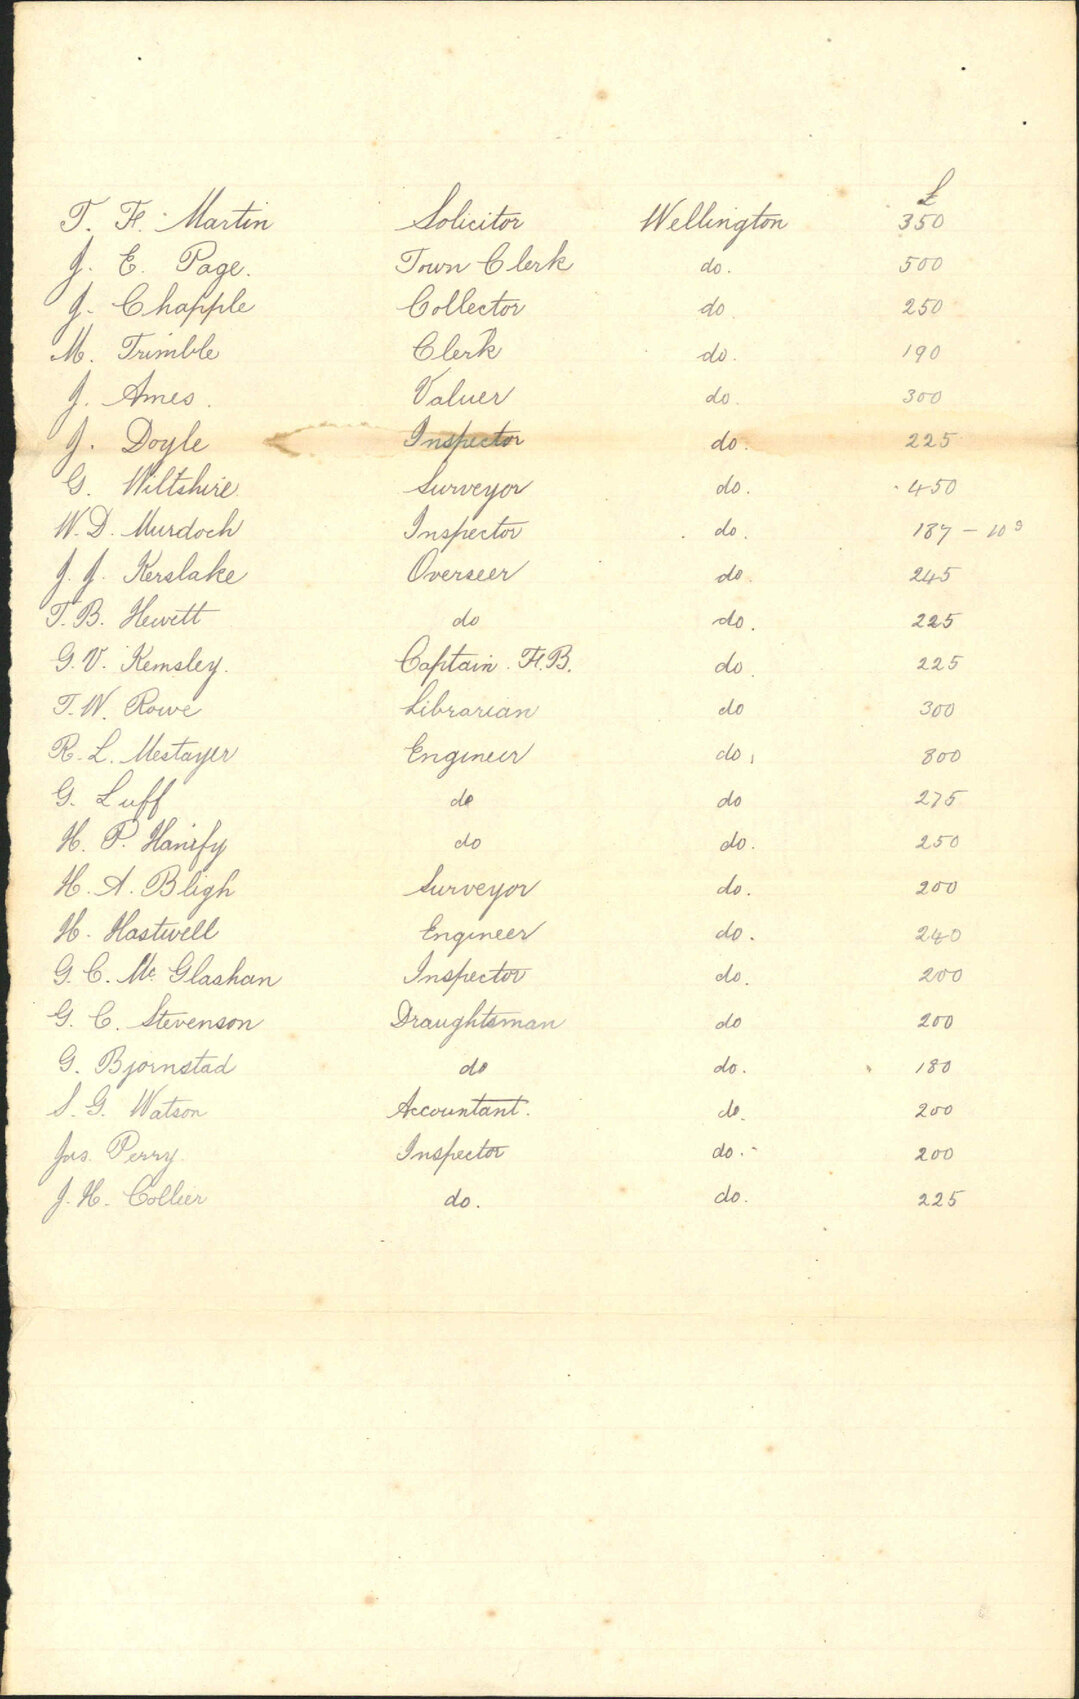 £
T. F. Martin Solicitor Wellington 350
J. E. Page. Town Clerk do. 500
J. Chapple Collector do. 250
M. Trimble Clerk do. 190
J. Ames. Valuer do. 300
J. Doyle Inspector do. 225
G. Wiltshire Surveyor do. 450
W. D. Murdoch Inspector do. 187 - 10s
J. J. Kerslake Overseer do. 245
T. B. Hewett do do. 225
G. V. Kemsley. Captain. F.B. do. 225
T. W. Rowe Librarian do 300
R. L. Mestayer Engineer do. 800
G. Luff do do 275
H. P. Hanify do do. 250
H. A. Bligh Surveyor do. 200
H. Hastwell Engineer do. 240
G. C. Mc Glashan Inspector do. 200
G. C. Stevenson Draughtsman do 200
G. Bjornstad do do. 180
S. G. Watson Accountant. do. 200
Jas. Perry. Inspector do. 200
J. H. Collier do. do. 225